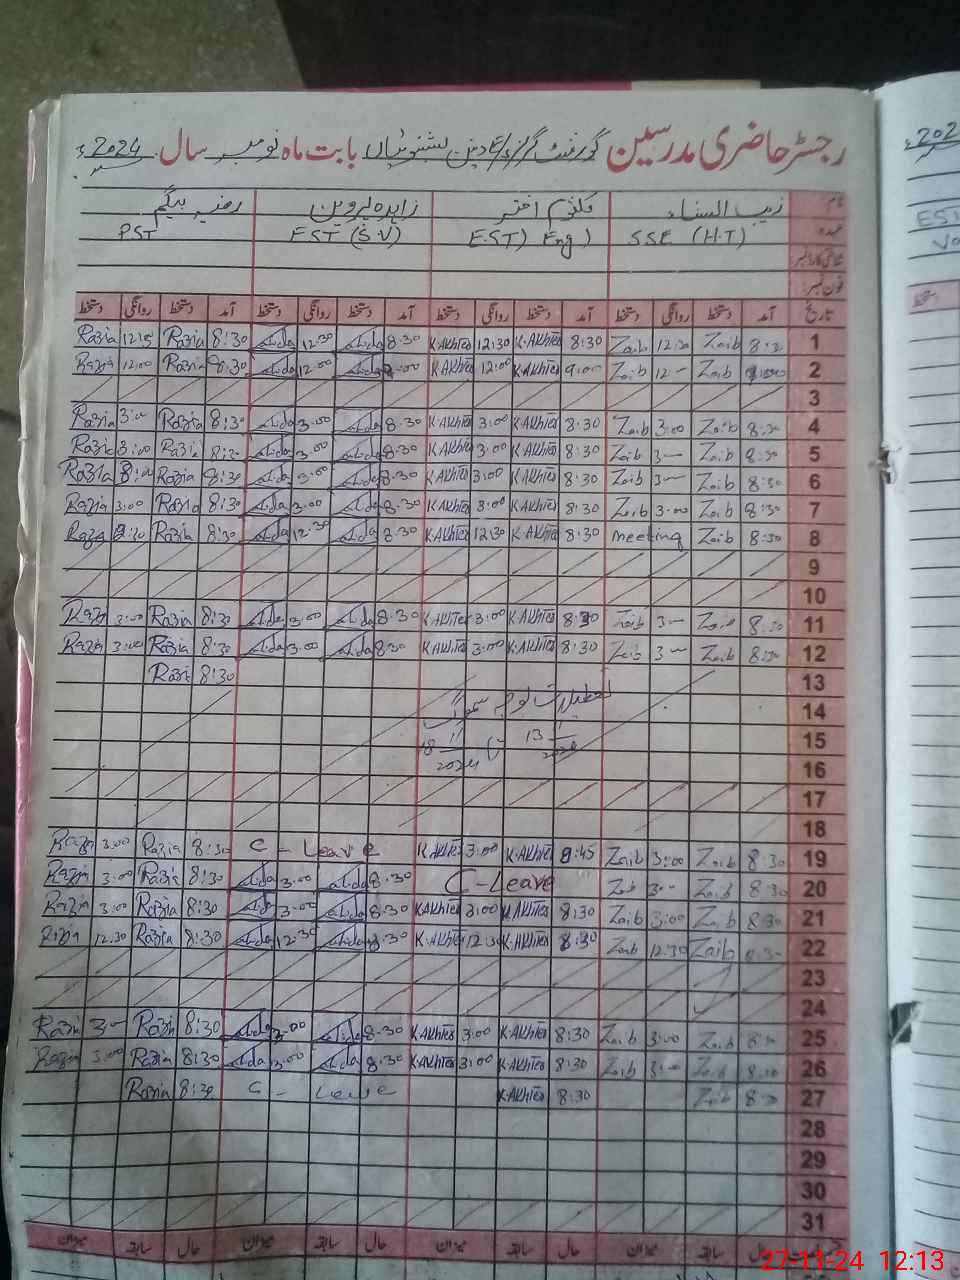 رجسٹر حاضری مدرسین گورنمنٹ گرلز بابت ماہ نومبر سال 2024ء
نام زیب النساء کلثوم اختر زاہدہ پروین رضیہ بیگم
عہدہ SSE (H.T) EST) Eng) EST (S.V) PST
شناختی کارڈ نمبر
فون نمبر
تاریخ آمد دستخط روانگی دستخط آمد دستخط روانگی دستخط آمد دستخط روانگی دستخط آمد دستخط روانگی دستخط
1 8:30 Zaib 12:30 Zaib 8:30 K.AKhter 12:30 K.AKhter 8:30 12:30 8:30 Razia 12:15 Razia
2 Zaib 12 Zaib 9:00 K.AKhter 12:00 K.AKhter 12:00 8:30 Razia 12:00 Razia
3
4 8:30 Zaib 3:00 Zaib 8:30 K.AKhter 3:00 K.AKhter 8:30 3:00 8:30 Razia 3:00 Razia
5 8:30 Zaib 3 Zaib 8:30 K.AKhter 3:00 K.AKhter 8:30 3:00 8:30 Razia 3:00 Razia
6 8:30 Zaib 3 Zaib 8:30 K.AKhter 3:00 K.AKhter 8:30 3:00 8:30 Razia Razia
7 8:30 Zaib 3:00 Zaib 8:30 K.AKhter 3:00 K.AKhter 8:30 3:00 8:30 Razia 3:00 Razia
8 8:30 Zaib meeting 8:30 K.AKhter 12:30 K.AKhter 8:30 12:30 8:30 Razia Razia
9
10
11 8:30 Zaib 3 Zaib 8:30 K.AKhter 3:00 K.AKhter 8:30 3:00 8:30 Razia 3:00 Razia
12 8:30 Zaib 3 Zaib 8:30 K.AKhter 3:00 K.AKhter 8:30 3:00 8:30 Razia 3:00 Razia
13 8:30 Razia
14 تعطیلات بوجہ سموگ
15 13/11/2024 تا 18/11/2024
16
17
18
19 8:30 Zaib 3:00 Zaib 8:45 K.AKhter 3:00 K.AKhter C - Leave 8:30 Razia 3:00 Razia
20 8:30 Zaib 3 Zaib C-Leave 8:30 3:00 8:30 Razia 3:00 Razia
21 8:30 Zaib 3:00 Zaib 8:30 K.AKhter 3:00 K.AKhter 8:30 3:00 8:30 Razia 3:00 Razia
22 8:30 Zaib 12:30 Zaib 8:30 K.AKhter 12:30 K.AKhter 8:30 12:30 8:30 Razia 12:30 Razia
23
24
25 8:30 Zaib 3:00 Zaib 8:30 K.AKhter 3:00 K.AKhter 8:30 3:00 8:30 Razia 3 Razia
26 8:30 Zaib 3:00 Zaib 8:30 K.AKhter 3:00 K.AKhter 8:30 3:00 8:30 Razia 3:00 Razia
27 8:30 Zaib 8:30 K.AKhter C - Leave 8:30 Razia
28
29
30
31
حال سابقہ میزان حال سابقہ میزان حال سابقہ میزان حال سابقہ میزان
27-11-24 12:13